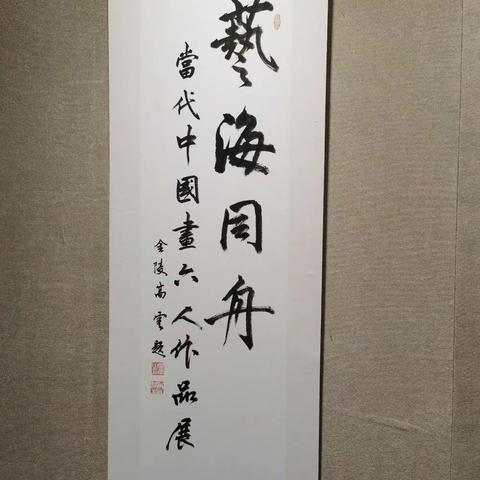 藝海同舟
當代中國畫六人作品展
金陵嵩雲題